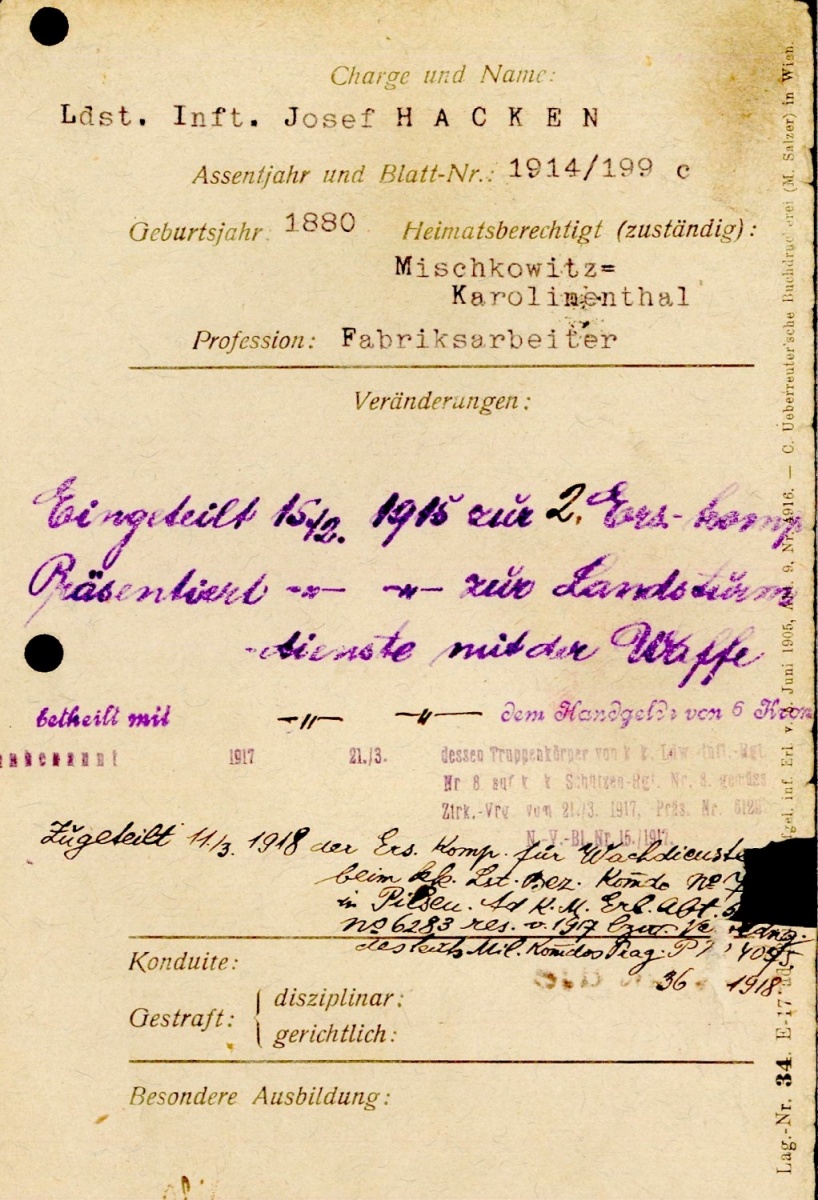 Charge und Name:
Ldst. Inft. Josef H A C K E N
Assentjahr und Blatt-Nr.: 1914/199 c
Geburtsjahr: 1880 Heimatsberechtigt (zuständig):
Mischkowitz=
Karolinenthal
Profession: Fabriksarbeiter
Veränderungen:
Eingeteilt 15/12. 1915 zur 2. Ers. komp
Präsentiert -"- -"- zur Landsturm
-dienste mit der Waffe
betheilt mit -"- -"- dem Handgelde von 6 Kron
1917 21./3. dessen Truppenkörper von k. k. Ldw.-Inft.-Rgt.
Nr 8 auf k. k. Schützen-Rgt. Nr. 8. 
Zirk.-Vrg. vom 21./3. 1917, Präs. Nr. 
N.-V.-Bl. Nr. 15./1917.
Zugeteilt 11/3. 1918 der Ers. Komp. für Wachdienste
beim kk. Lst. Bez. Komdo No 7
in Pilsen. Ad K.M. Erl. Abt. 5
No 6283 res. v. 1917 bzw.
des Mil. Komdos Prag. P
36 1918
Konduite:
Gestraft: { disziplinar:
gerichtlich:
Besondere Ausbildung:
Lag.-Nr. 34. E-17 inf. Erl. v. Juni 1905, Abt. 9, Nr. 1916. — C. Ueberreuter'sche Buchdruckerei (M. Salzer) in Wien.